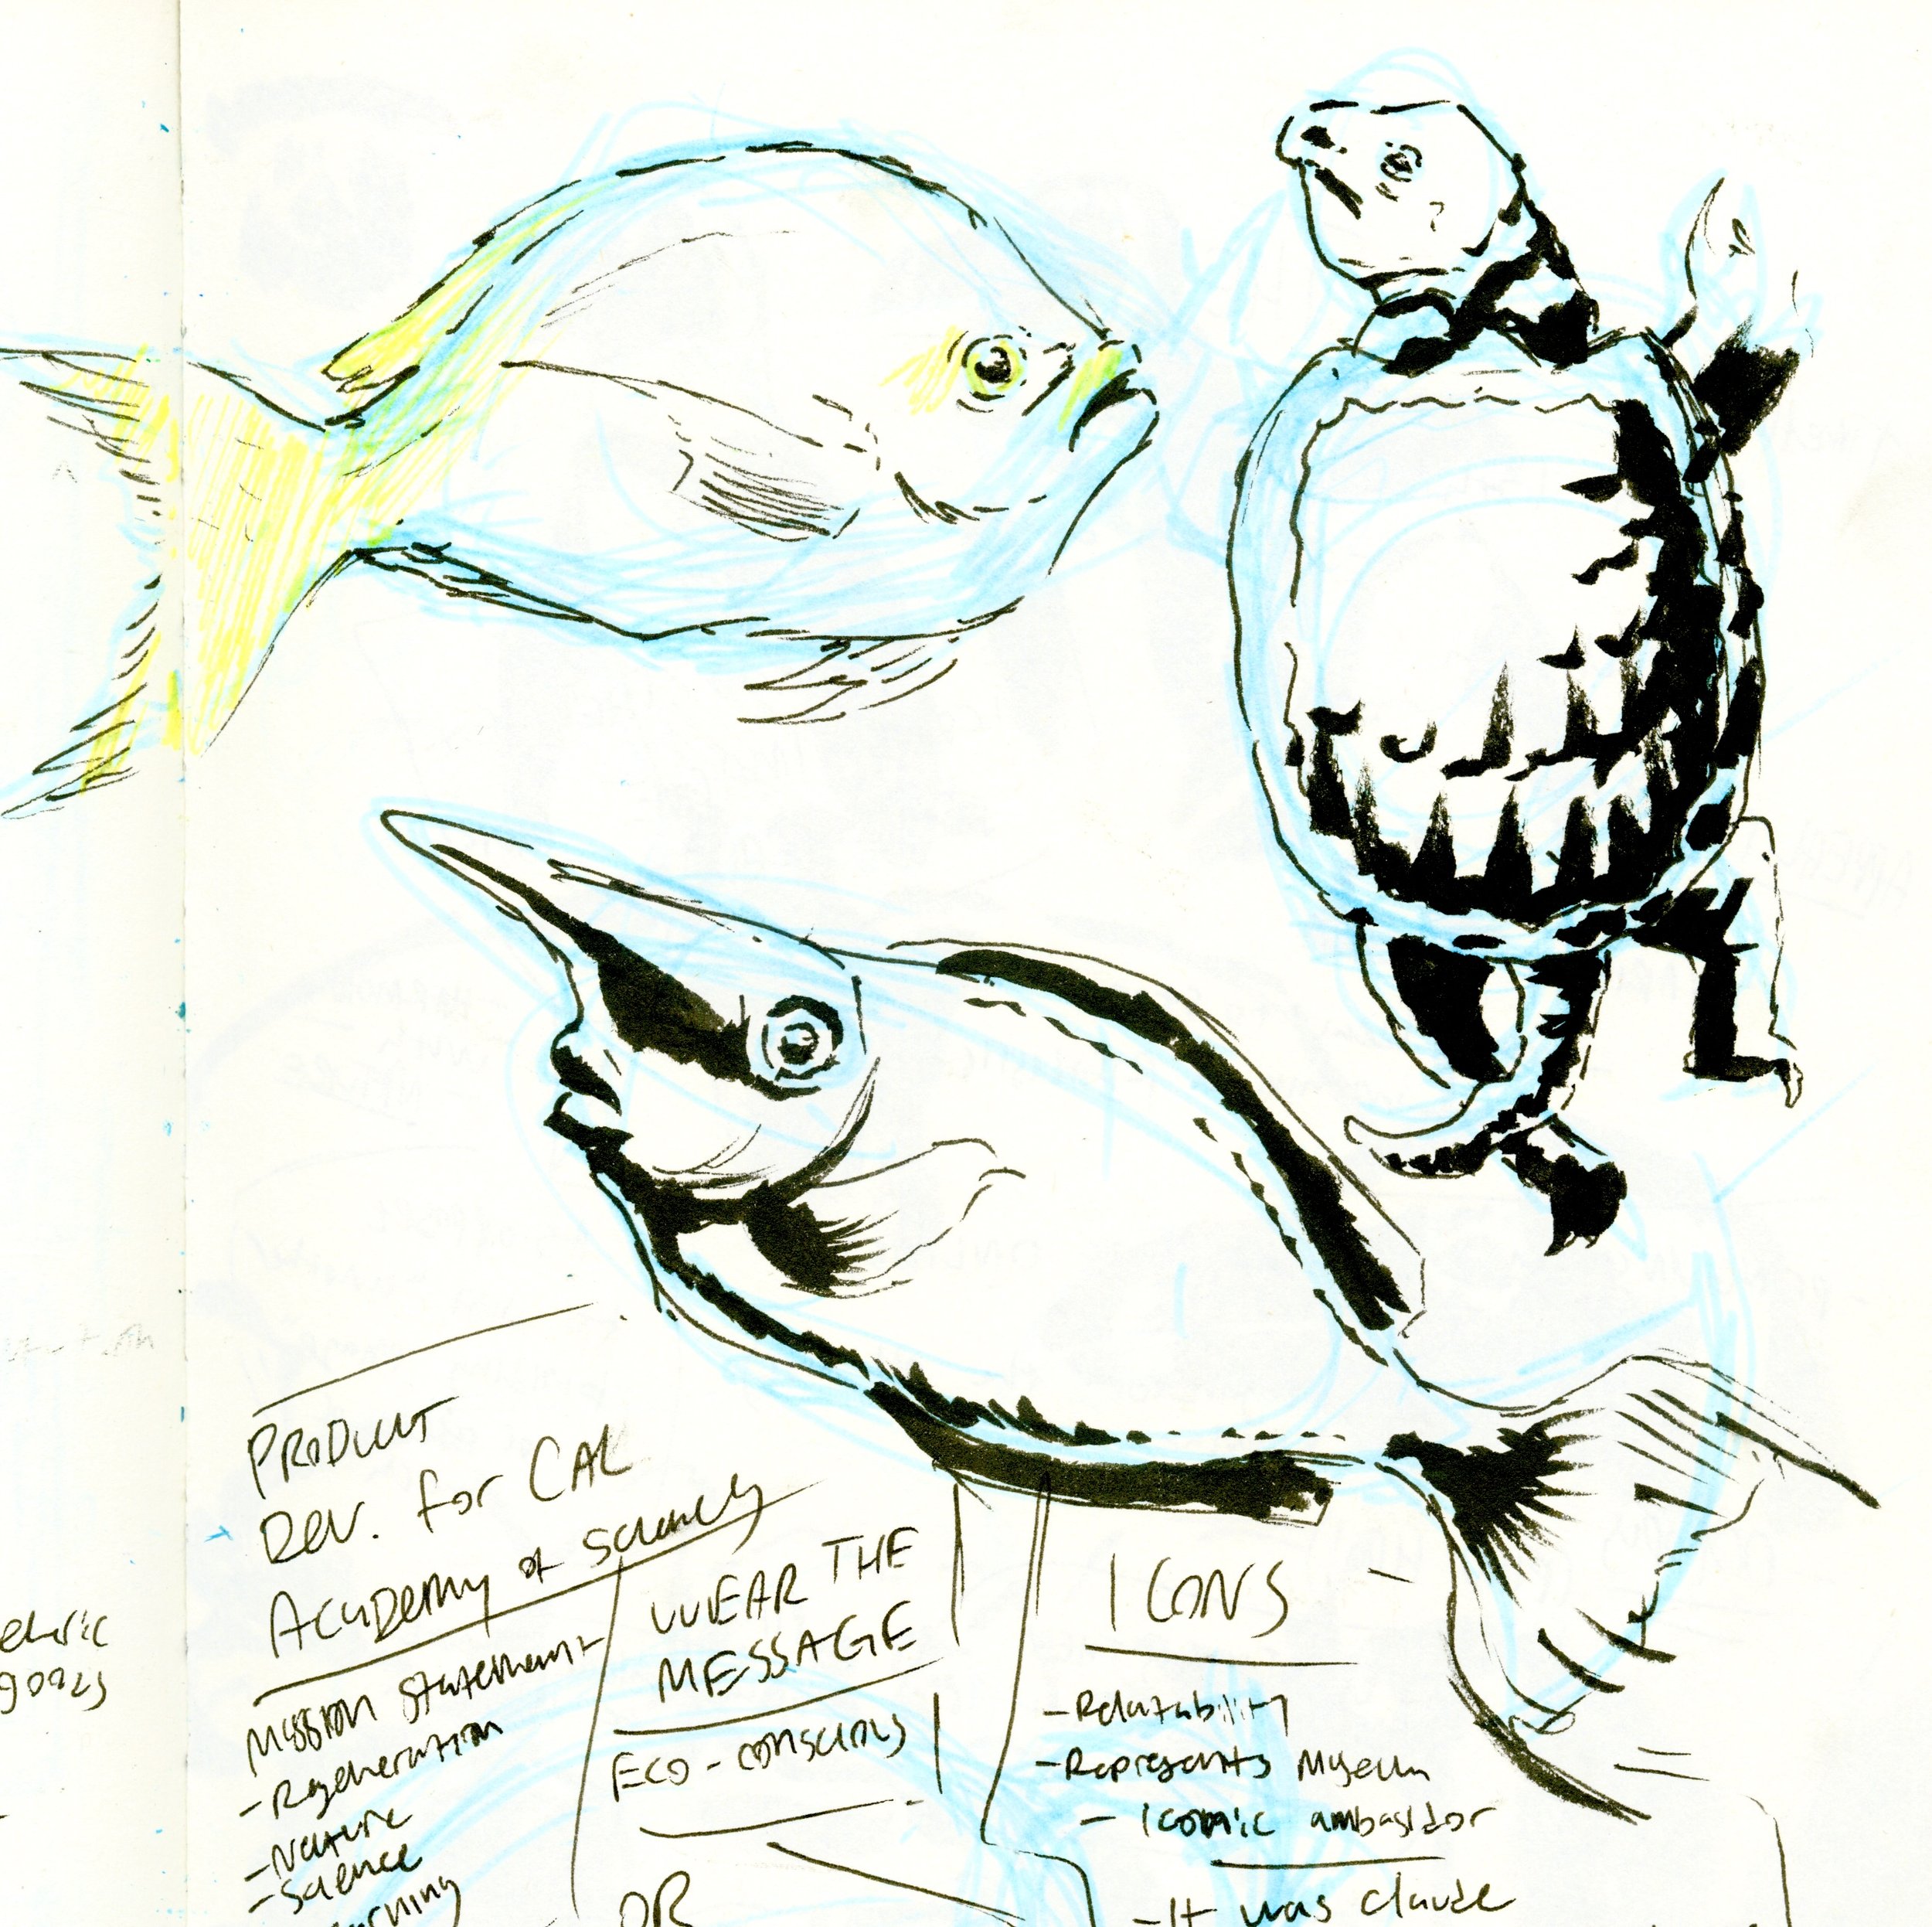 PRODUCT
DEV. for CAL
ACADEMY of Sciencey
MISSION Statement
- Regeneration
- Nature
- Science
WEAR THE
MESSAGE
ECO-CONSCIOUS
OR
ICONS -
- Relatability
- Represents Myseum
- Iconic ambasidor
- It was claude